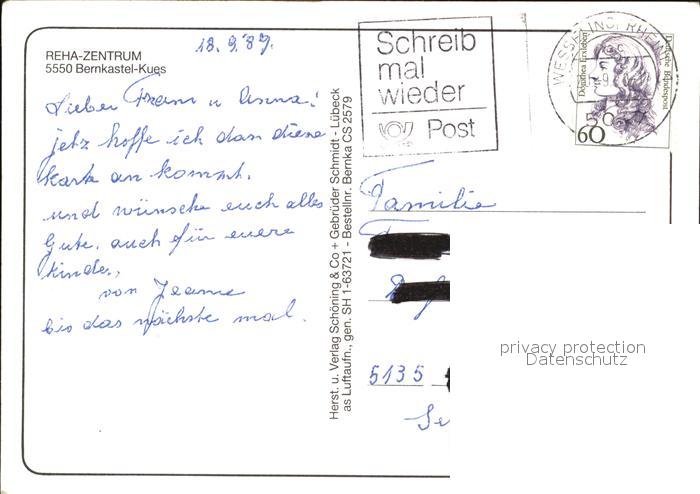 REHA-ZENTRUM
5550 Bernkastel-Kues
18.9.89.
Lieber Franz u Anna!
jetz hoffe ich dan diese
karte an kommt.
und wünsche euch alles
Gute. auch für euere
kinder,
von Jeanne
bis das nächste mal.
Herst. u. Verlag Schöning & Co + Gebrüder Schmidt - Lübeck
as Luftaufn., gen. SH 1-63721 - Bestellnr. Bernka CS 2579
Schreib
mal
wieder
Post
WESSELING, RHEINL
Dorothea Erxleben
Deutsche Bundespost
60
Familie
5135
privacy protection
Datenschutz